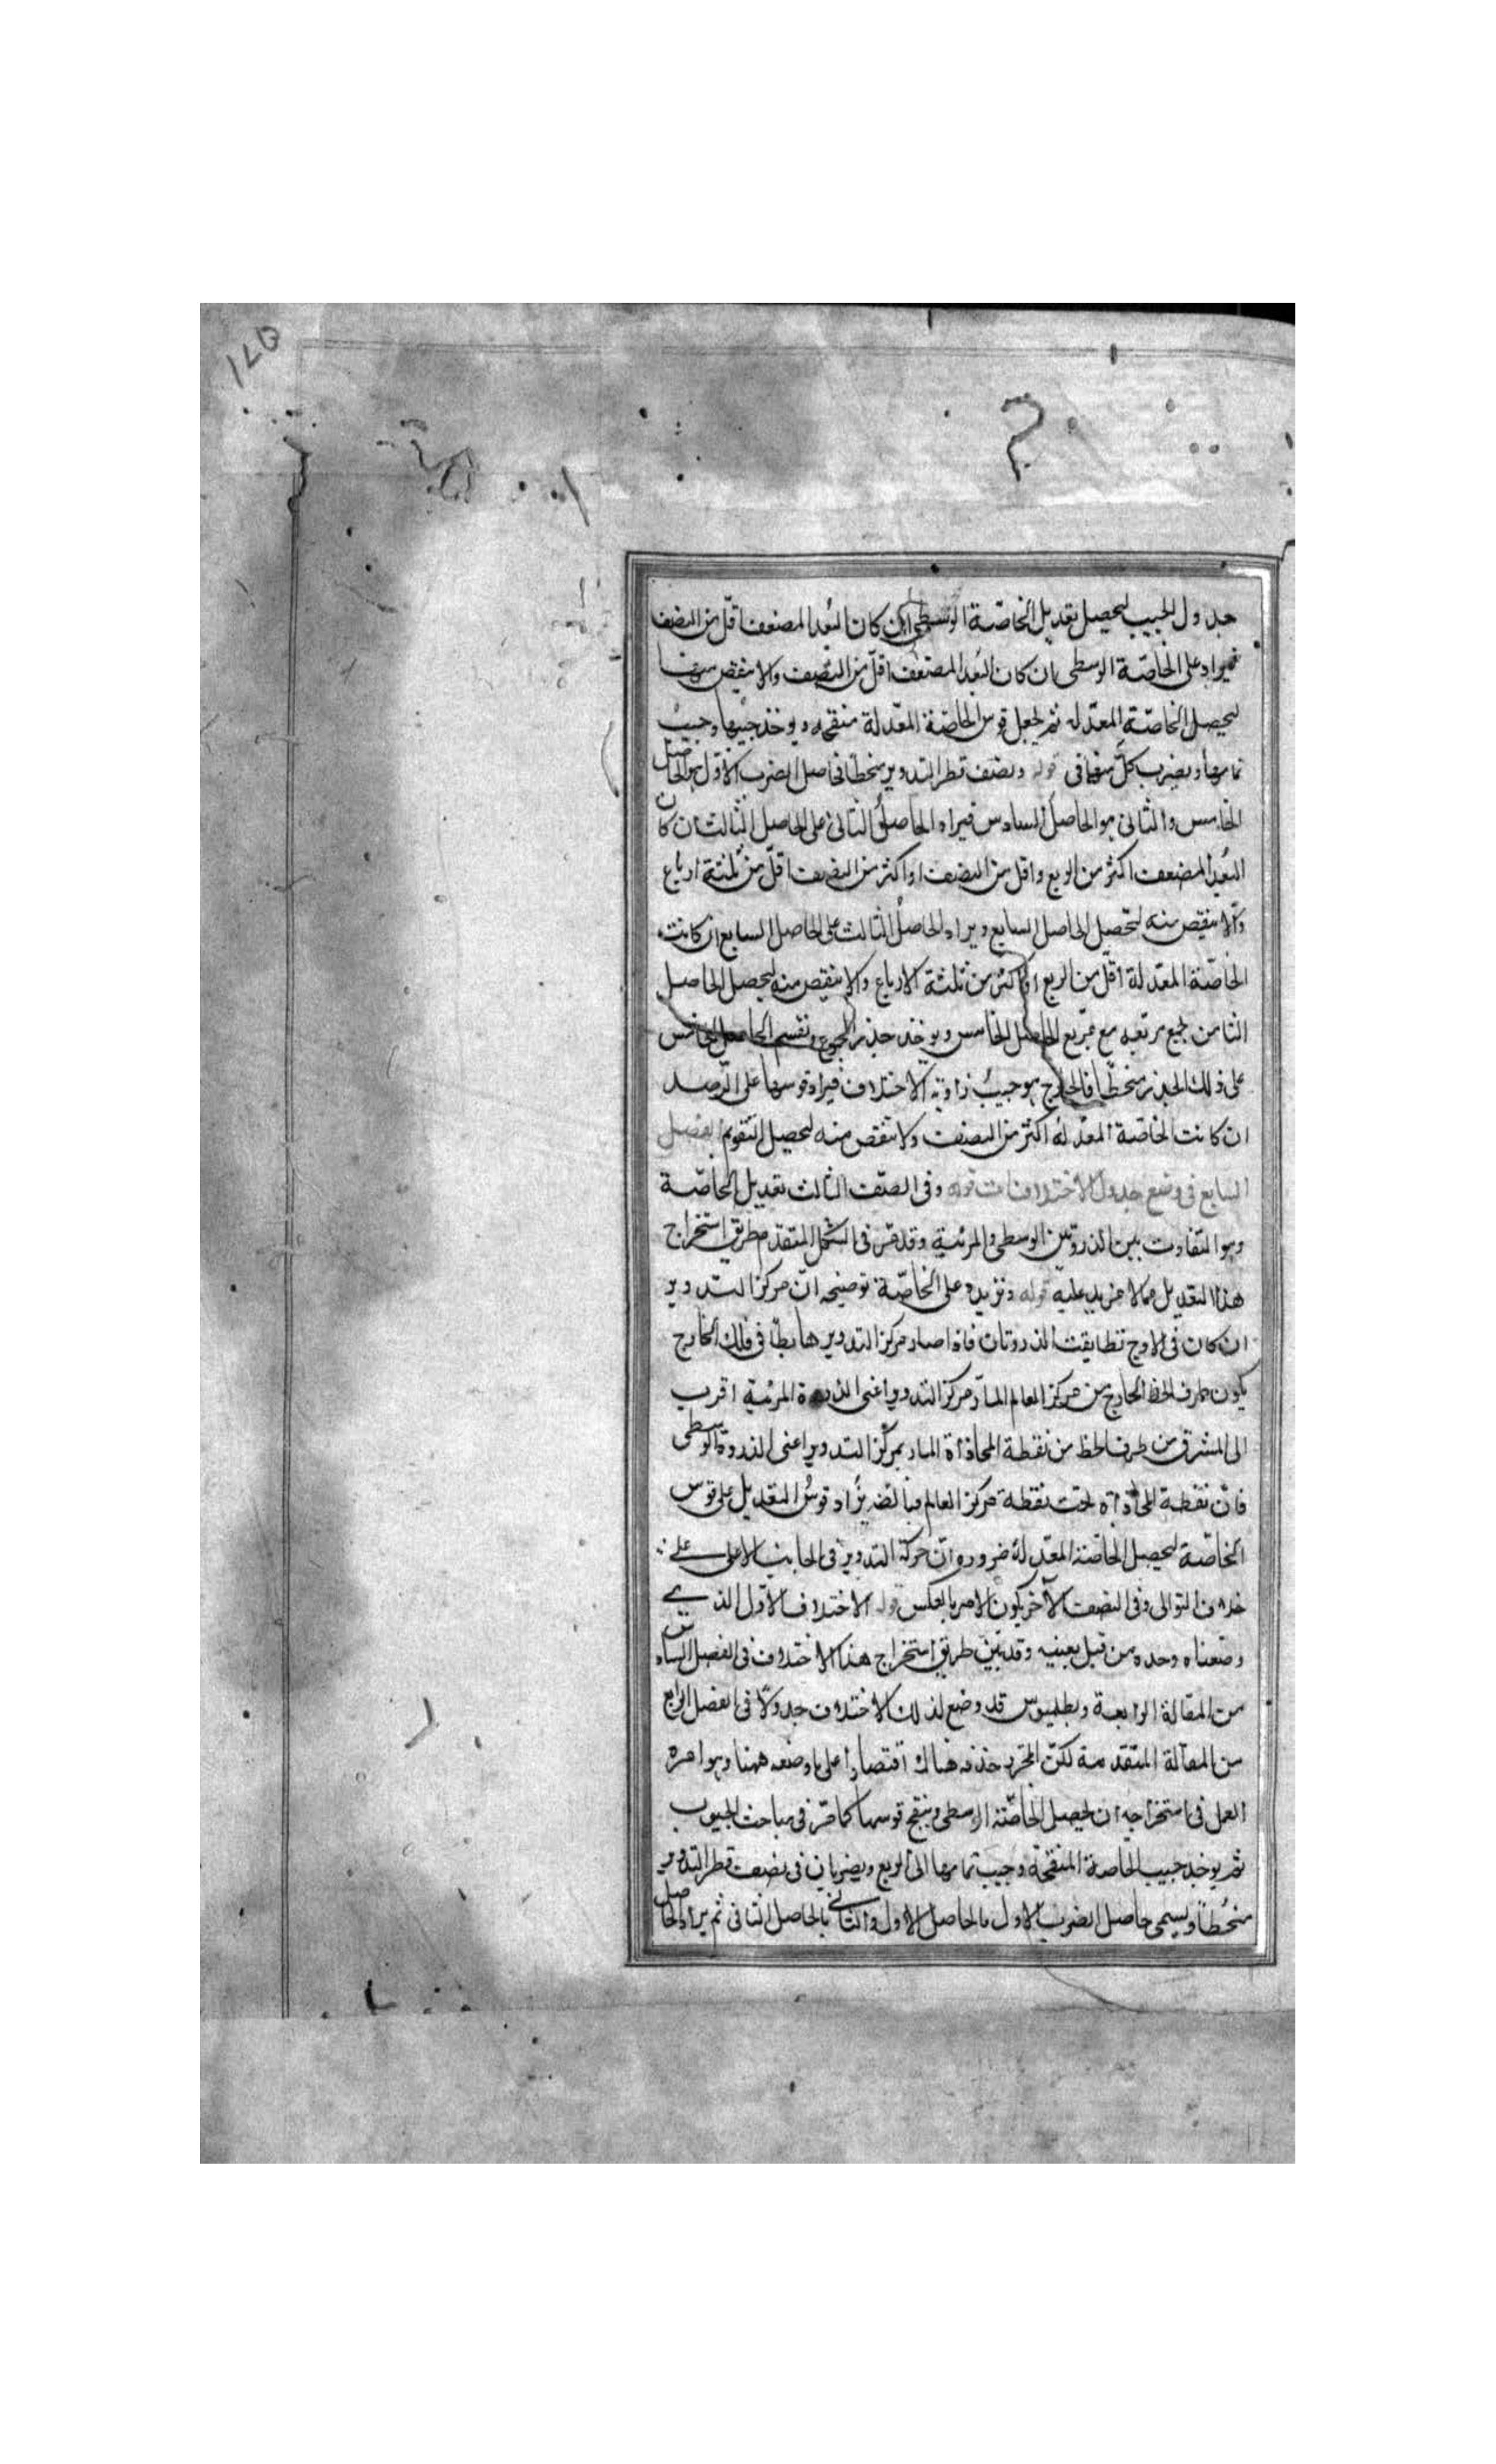 جدول الجيب ليحصل تعديل الخاصّة الوسطى ان كان البُعد المضعف اقلّ من النصف
فيزاد على الخاصّة الوسطى ان كان البُعد المضعف اقلّ من النصف والا ينقص منها
ليحصل الخاصّة المعدّلة ثم يجعل قوس الخاصّة المعدّلة منقحه ويوخذ جيبها وجيبُ
تمامها ويضرب كلّ منهما فى قوله ونصف قطر التدوير منحطّا فحاصل الضرب الاوّل هو الحاصل
الخامس والثانى هو الحاصل السادس فيزاد الحاصلُ الثانى على الحاصل الثالث ان كان
البُعد المضعف اكثر من الربع واقل من النصف او اكثر من النصف اقلّ من ثلثة ارباع
والا ينقص منه ليحصل الحاصل السابع ويزاد الحاصلُ الثالث على الحاصل السابع ان كانت
الخاصّة المعدّلة اقلّ من الربع او اكثر من ثلثة الارباع والا ينقص منه ليحصل الحاصل
الثامن لجمع مربّعه مع مربّع الحاصل الخامس ويوخذ جذر المجموع ونقسم الحاصل الخامس
على ذلك الجذر منحطّا فالخارج هو جيبُ زاوية الاختلاف فيزاد قوسها على الرصد
ان كانت الخاصّة المعدّلة اكثر من النصف ولا تنقص منه ليحصل التقويم الفصل
السابع فى وضع جدول الاختلافات قوله وفى الصّف الثالث تعديل الخاصّة
وهو التفاوت بين الذروتين الوسطى والمرئية وقد قرّ فى الشكل المتقدم طريق استخراج
هذا التعديل مما لا مزيد عليه قوله ونزيده على الخاصّة توضيحه انّ مركز التدوير
ان كان فى الاوج تطابقت الذروتان فاذا صار مركز التدوير هابطا فى فلك الخارج
يكون طرف الخط الخارج من مركز العالم المارّ مركز التدوير اعنى الذروة المرئية اقرب
الى المشرق من طرف الخط من نقطة المحاذاة المار بمركز التدوير اعنى الذروة الوسطى
فانّ نقطة المحاذاة تحت نقطة مركز العالم يزاد قوسُ التعديل على قوس
الخاصّة ليحصل الخاصّة المعدّلة ضرورة انّ حركة التدوير فى الجانب الاعلى على
خلاف التوالى وفى النصف الآخر يكون الامر بالعكس قوله الاختلاف الاوّل الذى
وضعناه وحده من قبل بعينه وقد بيّن طريق استخراج هذا الاختلاف فى الفصل السادس
من المقالة الرابعة وبطلميوس قد وضع لذلك الاختلاف جدولًا فى الفصل الرابع
من المقالة المتقدمة لكنّ المحرّر حذفه هناك اقتصارا على ما وضعه ههنا وهو احره
العمل فى استخراجه ان يحصل الخاصّة الوسطى وينقح قوسها كما مرّ فى مباحث الجيوب
ثم يوخذ جيب الخاصة المنقحة وجيب تمامها الى الربع ويضربان فى نصف قطر التدوير
منحطًا ويسمى حاصل الضرب الاول بالحاصل الاول والثانى بالحاصل الثانى ثم يزاد الحاصل